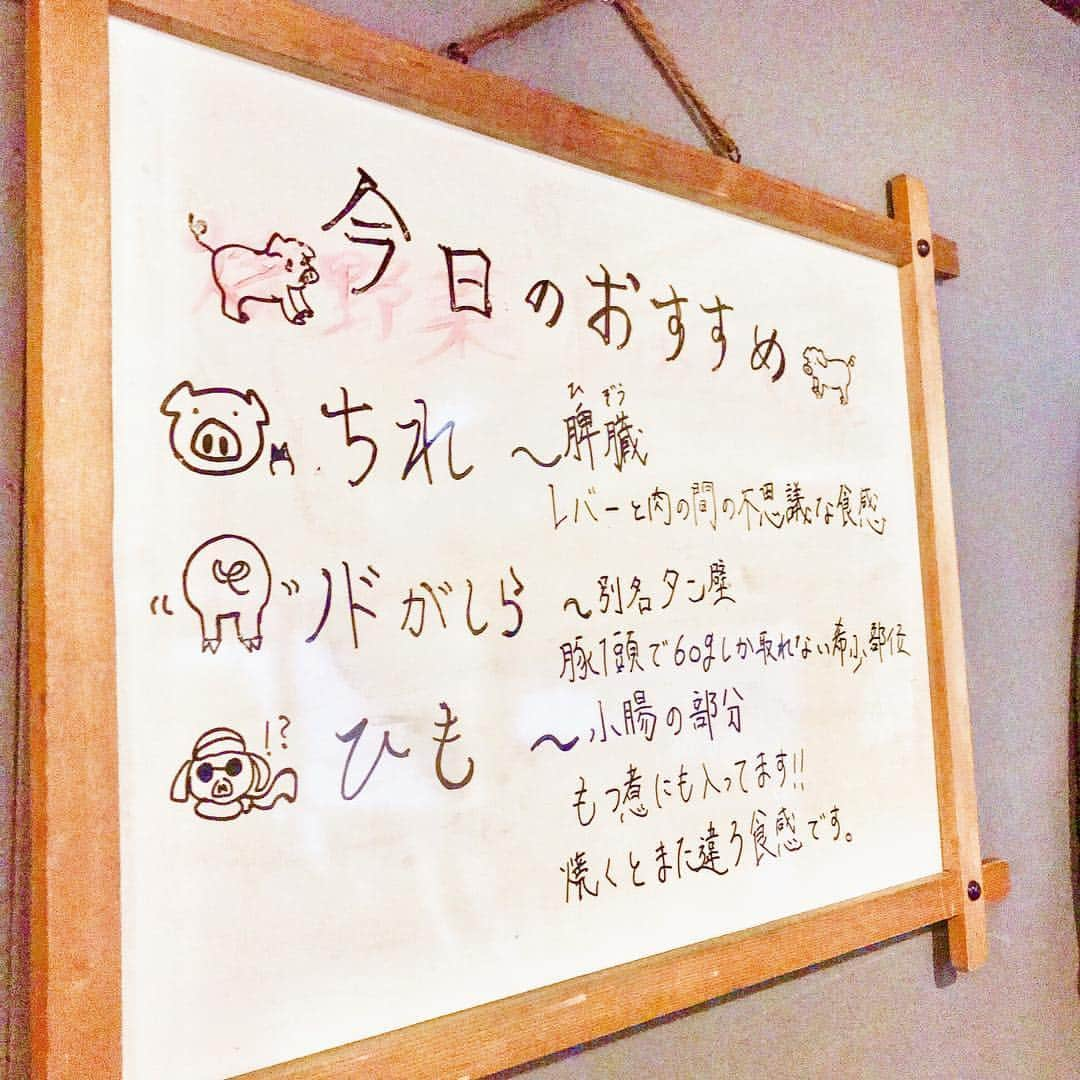 今日のおすすめ
ちれ 〜脾臓
ひ ぞう
レバーと肉の間の不思議な食感
ノドがしら 〜別名タン壁
豚1頭で60gしか取れない希少部位
!?
ひも 〜小腸の部分
もつ煮にも入ってます!!
焼くとまた違う食感です。